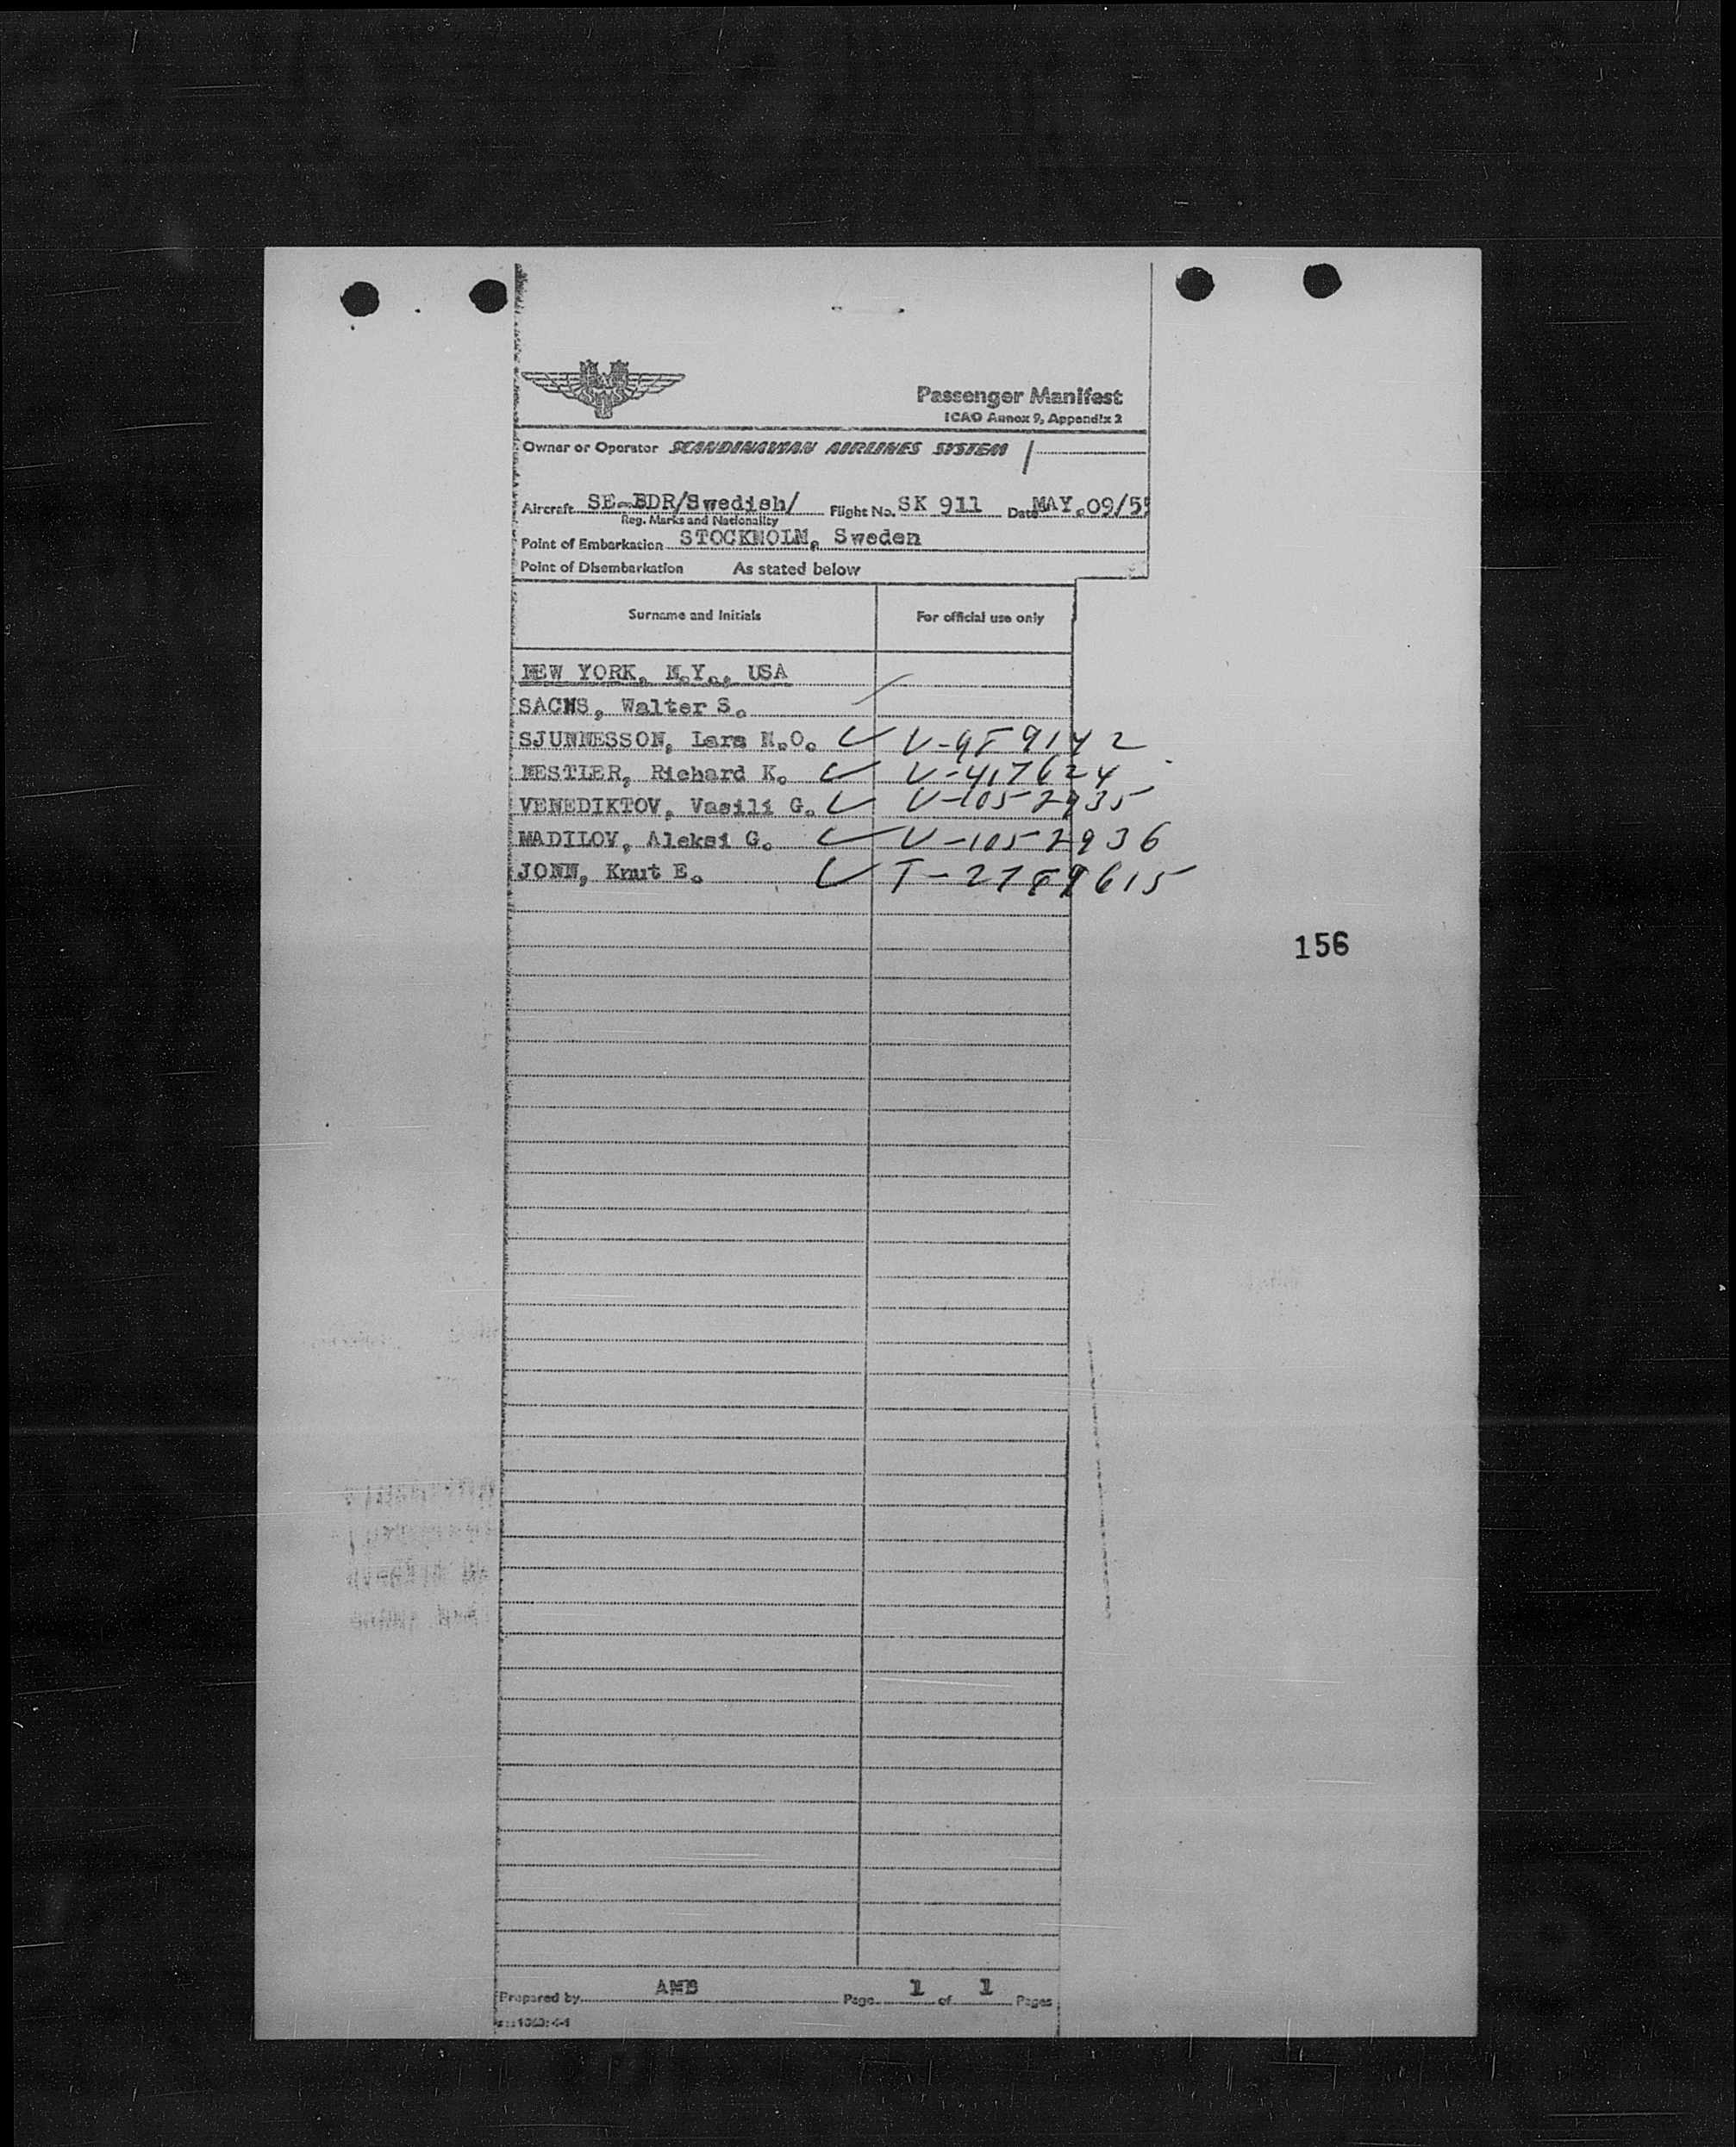 Passenger Manifest
ICAO Annex 9, Appendix 2
Owner or Operator SCANDINAVIAN AIRLINES SYSTEM
Aircraft SE-BDR/Swedish/ Flight No. SK 911 Date MAY.09/55
Reg. Marks and Nationality
Point of Embarkation STOCKHOLM, Sweden
Point of Disembarkation As stated below
Surname and Initials For official use only
NEW YORK, N.Y., USA
SACHS, Walter S.
SJUNNESSON, Lars N.O. V-989142
NESTLER, Richard K. V-417624
VENEDIKTOV, Vasili G. V-1052935
MADILOV, Aleksi G. V-1052936
JONN, Knut E. T-2789615
156
Prepared by ANB Page 1 of 1 Pages